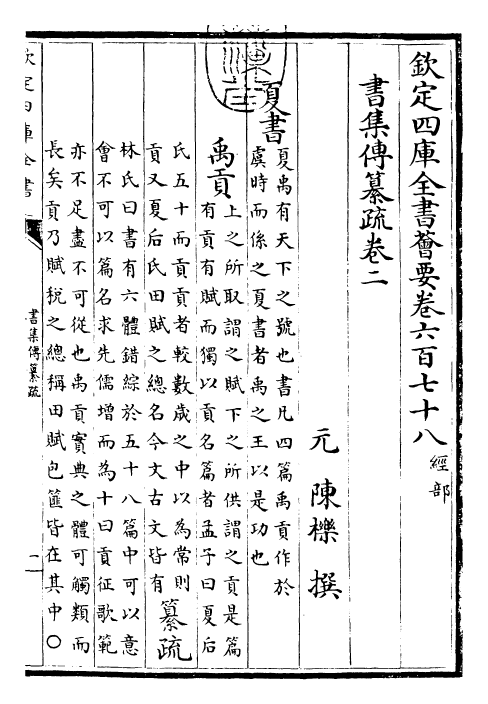 欽定四庫全書薈要卷六百七十八 經部
書集傳纂疏卷二
元 陳櫟 撰
夏書
夏禹有天下之號也書凡四篇禹貢作於
虞時而係之夏書者禹之王以是功也
禹貢
上之所取謂之賦下之所供謂之貢是篇
有貢有賦而獨以貢名篇者孟子曰夏后
氏五十而貢貢者較數歲之中以為常則
貢又夏后氏田賦之總名今文古文皆有
纂疏
林氏曰書有六體錯綜於五十八篇中可以意
會不可以篇名求先儒增而為十曰貢征歌範
亦不足盡不可從也禹貢實典之體可觸類而
長矣貢乃賦稅之總稱田賦包篚皆在其中〇
欽定四庫全書
書集傳纂疏
一